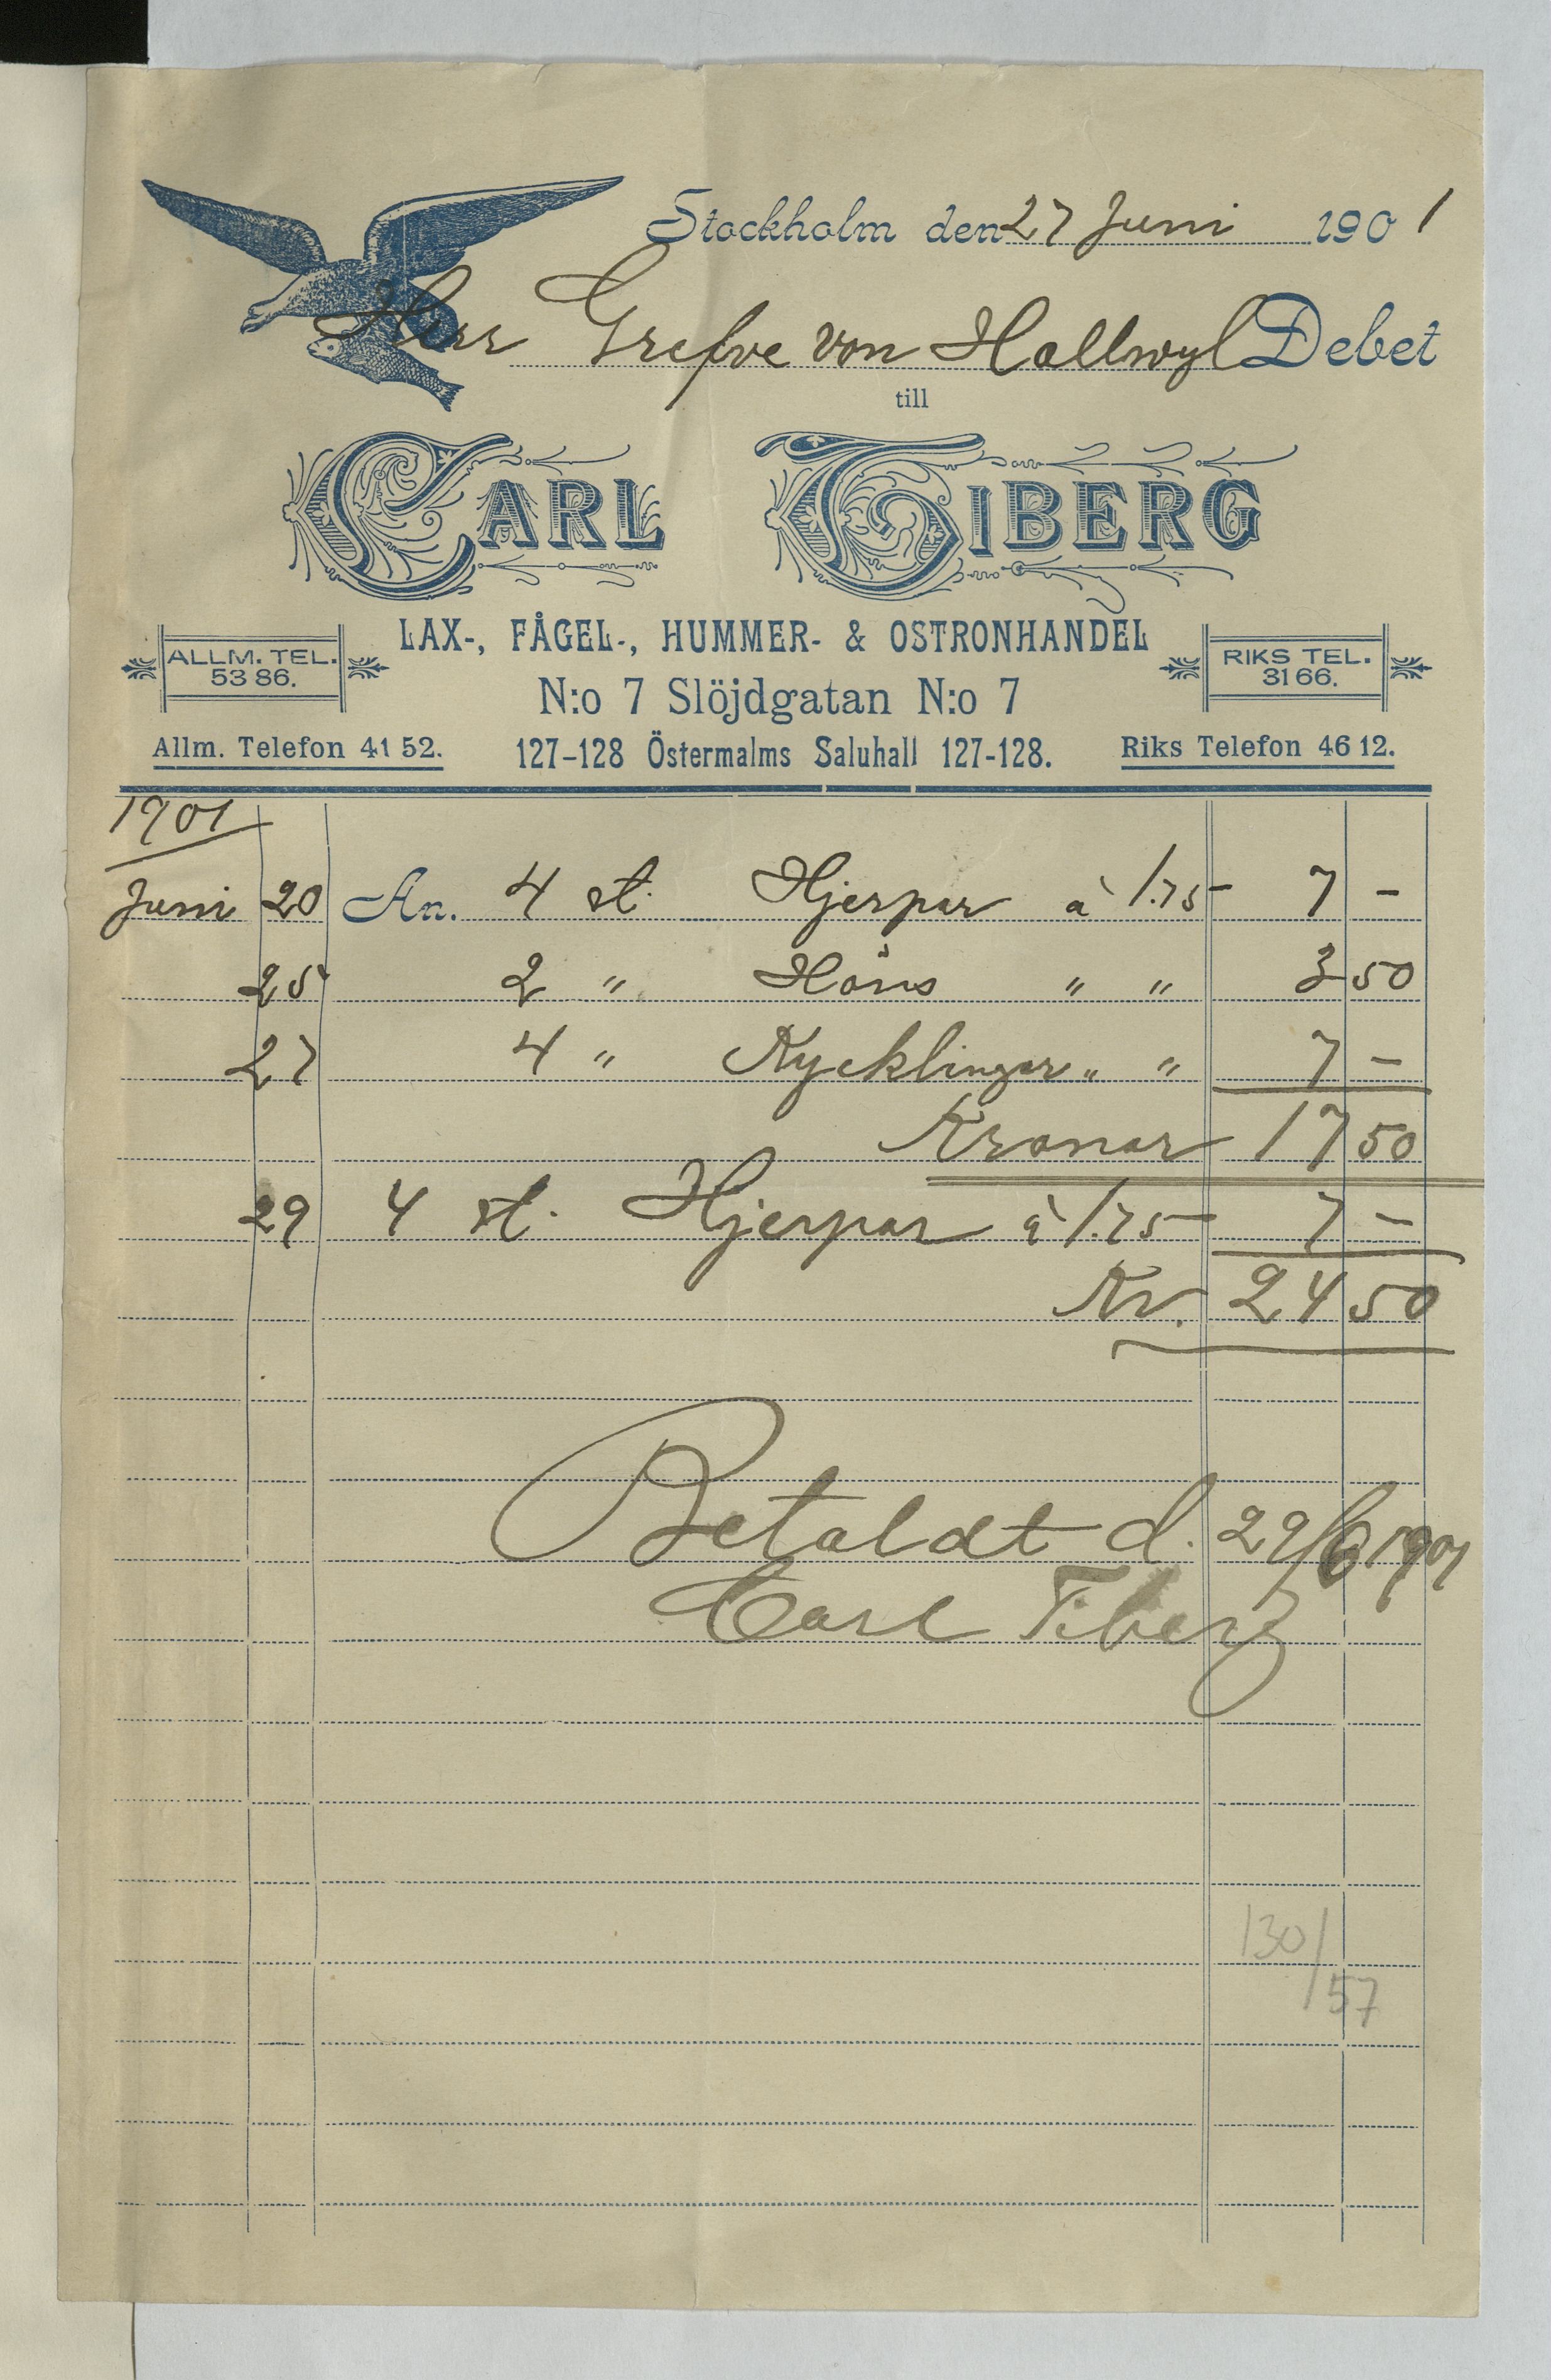 Stockholm den 27 Juni 1901
Herr Grefve von Hallwyl Debet
till
CARL TIBERG
LAX-, FÅGEL-, HUMMER- & OSTRONHANDEL
ALLM. TEL. 53 86.
RIKS TEL. 31 66.
N:o 7 Slöjdgatan N:o 7
Allm. Telefon 41 52. 127-128 Östermalms Saluhall 127-128. Riks Telefon 46 12.
1901
Juni 20 An. 4 st. Hjerpar à 1.75 7 –
25 2 " Höns " " 3 50
27 4 " Kycklingar " " 7 –
Kronor 17 50
29 4 st. Hjerpar à 1.75 7 –
Kr. 24 50
Betaldt d. 29/6 1901
Carl Tiberg
130/57